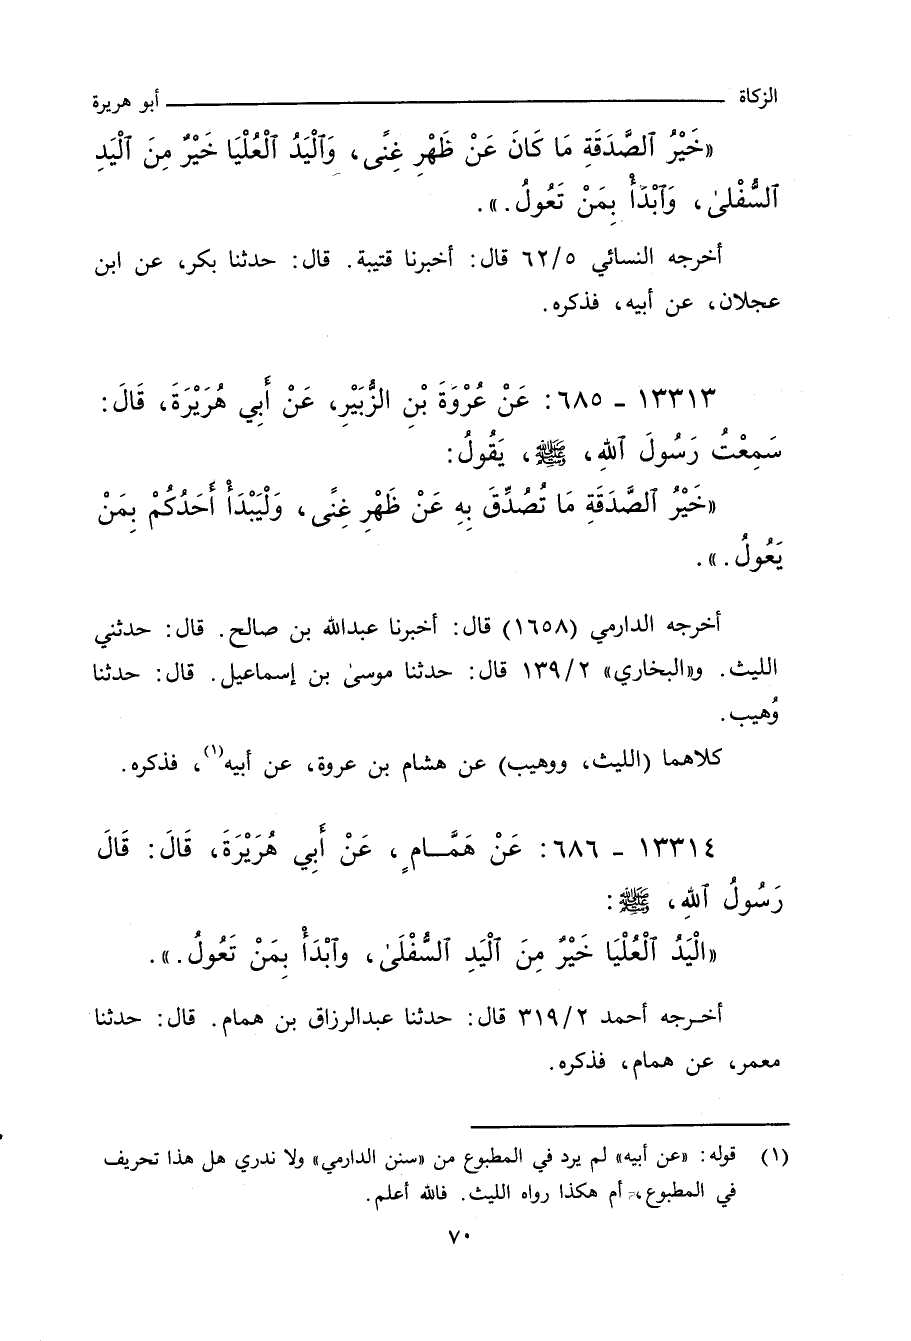 الزكاة ــــــــــــ أبو هريرة
«خَيْرُ ٱلصَّدَقَةِ مَا كَانَ عَنْ ظَهْرِ غِنًى، وَٱلْيَدُ ٱلْعُلْيَا خَيْرٌ مِنَ ٱلْيَدِ
ٱلسُّفْلىٰ، وَٱبْدَأْ بِمَنْ تَعُولُ.».
أخرجه النسائي ٦٢/٥ قال: أخبرنا قتيبة. قال: حدثنا بكر، عن ابن
عجلان، عن أبيه، فذكره.
١٣٣١٣ ـ ٦٨٥: عَنْ عُرْوَةَ بْنِ الزُّبَيْرِ، عَنْ أَبِي هُرَيْرَةَ، قَالَ:
سَمِعْتُ رَسُولَ ٱللهِ، ﷺ، يَقُولُ:
«خَيْرُ ٱلصَّدَقَةِ مَا تُصُدِّقَ بِهِ عَنْ ظَهْرِ غِنًى، وَلْيَبْدَأْ أَحَدُكُمْ بِمَنْ
يَعُولُ.».
أخرجه الدارمي (١٦٥٨) قال: أخبرنا عبدالله بن صالح. قال: حدثني
الليث. و«البخاري» ١٣٩/٢ قال: حدثنا موسىٰ بن إسماعيل. قال: حدثنا
وُهيب.
كلاهما (الليث، ووهيب) عن هشام بن عروة، عن أبيه(١)، فذكره.
١٣٣١٤ ـ ٦٨٦: عَنْ هَمَّـامٍ، عَنْ أَبِي هُرَيْرَةَ، قَالَ: قَالَ
رَسُولُ ٱللهِ، ﷺ:
«الْيَدُ ٱلْعُلْيَا خَيْرٌ مِنَ ٱلْيَدِ ٱلسُّفْلَىٰ، وٱبْدَأْ بِمَنْ تَعُولُ.».
أخـرجه أحمد ٣١٩/٢ قال: حدثنا عبدالرزاق بن همام. قال: حدثنا
معمر، عن همام، فذكره.
(١) قوله: «عن أبيه» لم يرد في المطبوع من «سنن الدارمي» ولا ندري هل هذا تحريف
في المطبوع، أم هكذا رواه الليث. فالله أعلم.
٧٠